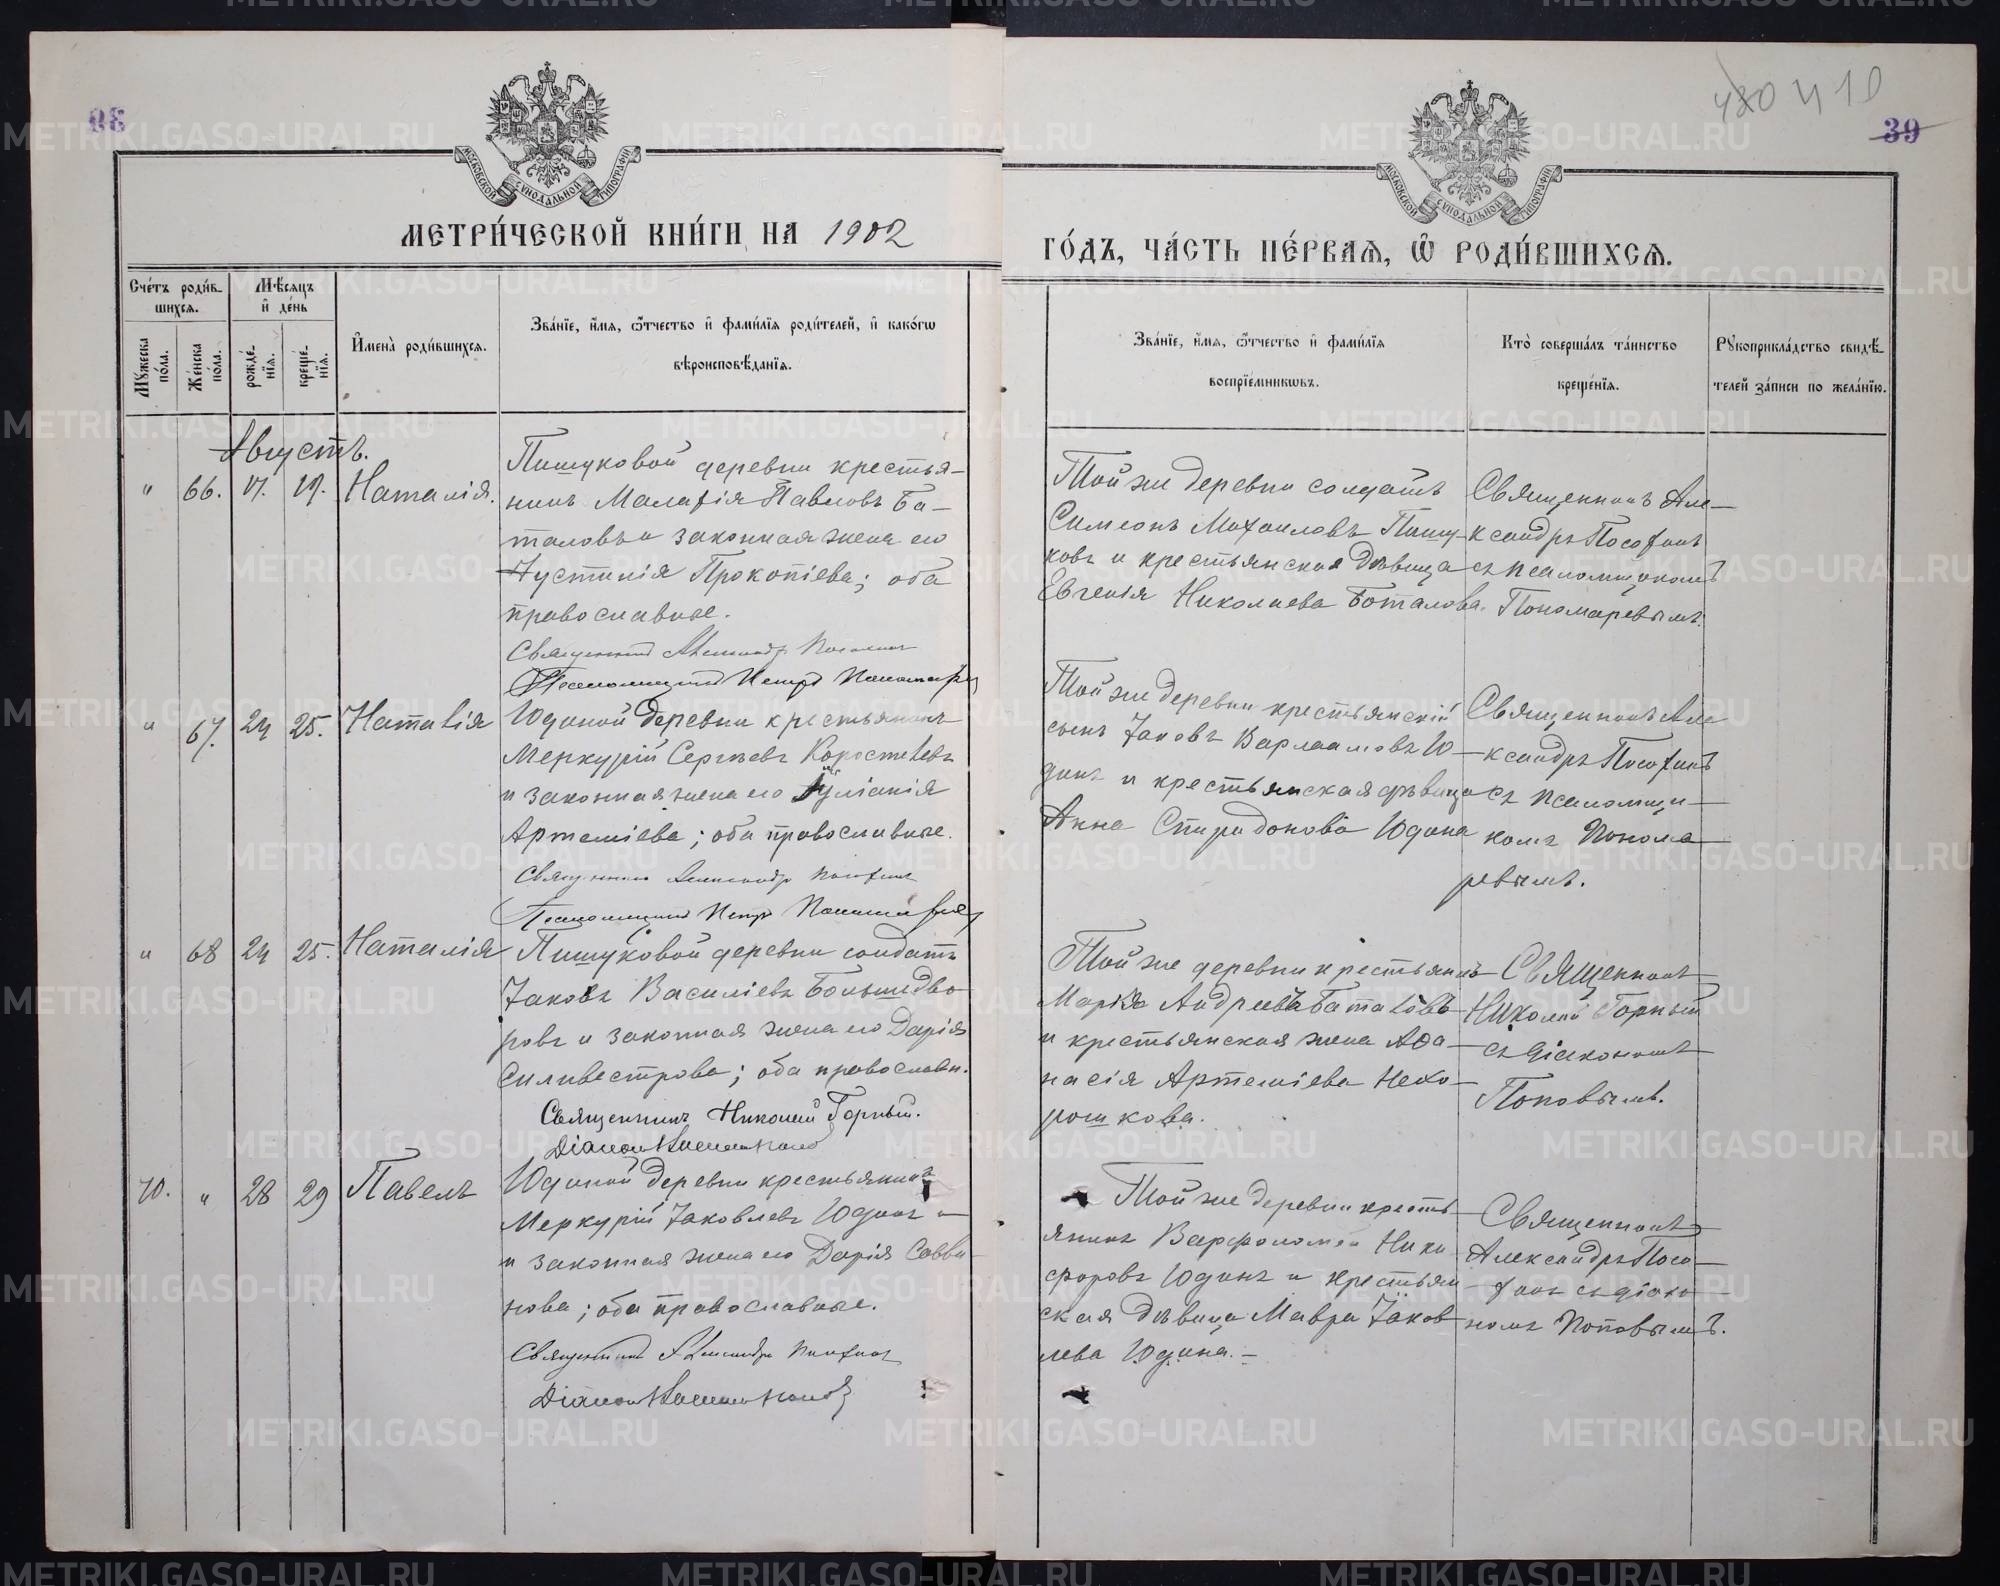 38
39
480 410
МОСКОВСКОЙ СѴНОДАЛЬНОЙ ТИПОГРАФІИ
МОСКОВСКОЙ СѴНОДАЛЬНОЙ ТИПОГРАФІИ
МЕТРИ́ЧЕСКОЙ КНИ́ГИ НА 1902
ГО́ДЪ, ЧА́СТЬ ПЕ́РВАѦ, Ѽ РОДИ́ВШИХСѦ.
Сче́тъ роди́в-
шихсѧ.
Мѣ́сѧцъ
и҆ де́нь
Мꙋ́жеска
по́ла.
Же́нска
по́ла.
рожде́-
нїѧ.
креще́-
нїѧ.
И҆мена̀ роди́вшихсѧ.
Зва́нїе, и҆́мѧ, ѻ҆́тчество и҆ фамі́лїѧ роди́телей, и҆ како́гѡ
вѣроисповѣ́данїѧ.
Зва́нїе, и҆́мѧ, ѻ҆́тчество и҆ фамі́лїѧ
воспрїе́мникѡвъ.
Кто̀ соверша́лъ та́инство
креще́нїѧ.
Рꙋкоприкла́дство свидѣ́-
телей за́писи по жела́нїю.
Августъ.
" 66. 17. 19. Наталія.
Пишуковой деревни крестья-
нинъ Малахія Павловъ Ба-
таловъ и законная жена его
Іустинія Прокопіева; оба
православные.
Священникъ Александръ Посохинъ
Псаломщикъ Петръ Пономаревъ
Той же деревни солдатъ
Симеонъ Михаиловъ Пишу-
ковъ и крестьянская дѣвица
Евгенія Николаева Боталова.
Священникъ Але-
ксандръ Посохинъ
съ псаломщикомъ
Пономаревымъ.
" 67. 24 25. Наталія
Юдиной деревни крестьянинъ
Меркурій Сергѣевъ Коростелевъ
и законная жена его Іуліанія
Артеміева; оба православные.
Священникъ Александръ Посохинъ
Псаломщикъ Петръ Пономаревъ
Той же деревни крестьянскій
сынъ Іаковъ Варлаамовъ Ю-
динъ и крестьянская дѣвица
Анна Спиридонова Юдина
Священникъ Але
ксандръ Посохинъ
съ псаломщи-
комъ Понома
ревымъ.
" 68 24 25. Наталія
Пишуковой деревни солдатъ
Іаковъ Василіевъ Большедво-
ровъ и законная жена его Дарія
Силивестрова; оба православн.
Священникъ Николай Горный.
Діаконъ
Той же деревни крестьянинъ
Марка Андреевъ Баталовъ
и крестьянская жена Аѳа-
насія Артеміева Нехо-
рошкова.
Священникъ
Николай Горный
съ діакономъ
Поповымъ.
70. " 28 29 Павелъ
Юдиной деревни крестьянинъ
Меркурій Іаковлевъ Юдинъ -
и законная жена его Дарія Савви-
нова; оба православные.
Священникъ Александръ Посохинъ
Діаконъ
Той же деревни кресть
янинъ Варфоломей Ники
форовъ Юдинъ и крестьян
ская дѣвица Мавра Іаков
лева Юдина. -
Священникъ
Александръ Посо-
хинъ съ діако-
номъ Поповымъ.
METRIKI.GASO-URAL.RU